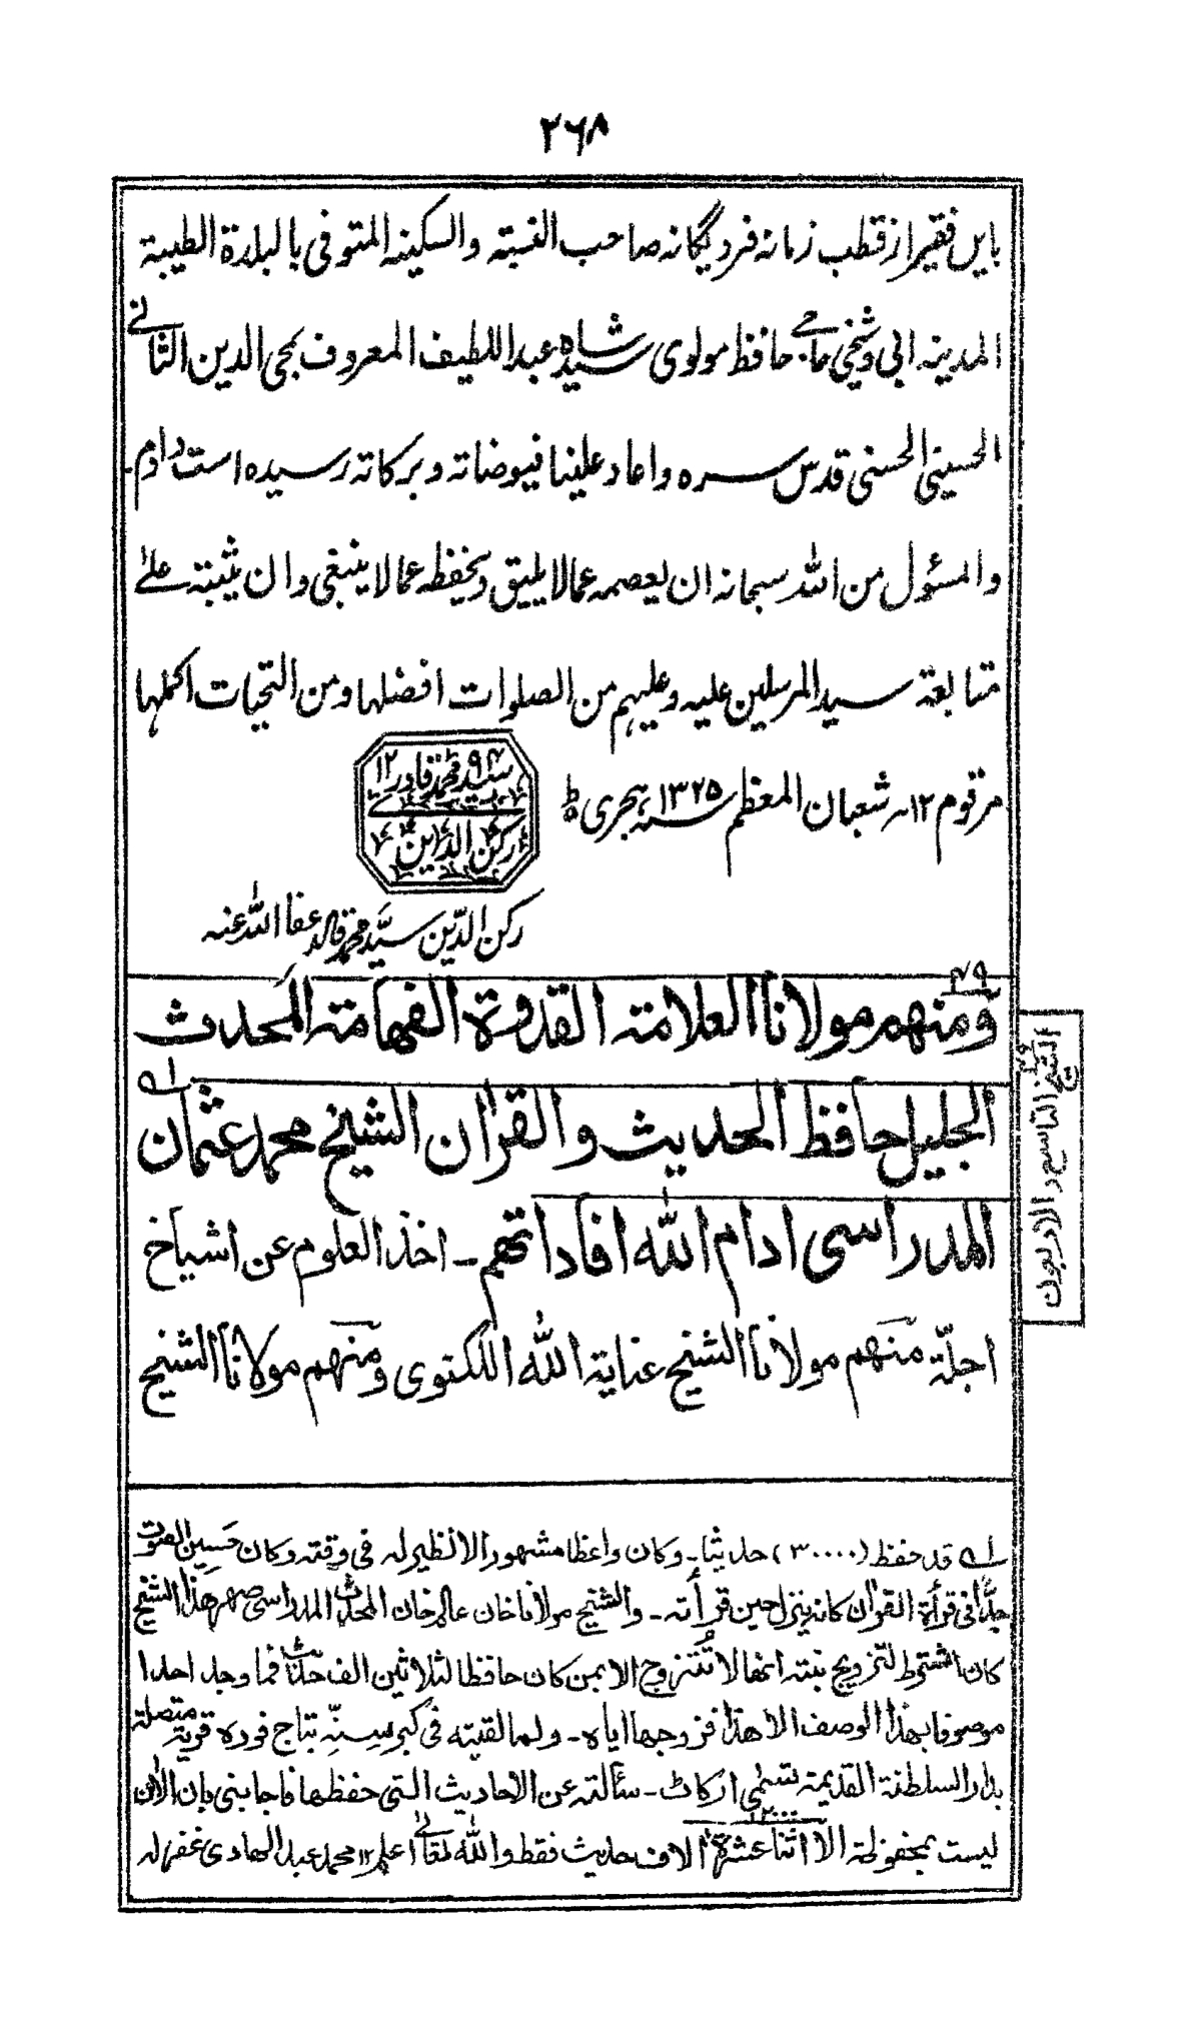 ۲۶۸
بایں فقیر از قطب زمانہ فرد یگانہ صاحب النسبتہ والسکینہ المتوفی بالبلدة الطیبة
المدینہ ابی وشیخی حاجی حافظ مولوی سید شاہ عبداللطیف المعروف بمحی الدین الثانی
الحسینی الحسنی قدس سرہ واعاد علینا فیوضاتہ وبرکاتہ رسیدہ است دادم
والمسئول من اللہ سبحانہ ان یعصمہ عمالا یلیق ویحفظہ عمالا ینبغی وان یثبتہ علیٰ
متابعة سید المرسلین علیہ وعلیہم من الصلوات افضلہا ومن التحیات اکملہا
مرقوم ۱۲ شعبان المعظم سنہ ۱۳۲۵ ہجری
سید محمد قادری
رکن الدین
رکن الدّین سیّد محمد قادری عفا اللہ عنہ
۴۹
ومنهم مولانا العلامتہ القدوة الفهامتہ المحدث
الجلیل حافظ الحدیث والقرآن الشیخ محمد عثمان
المدراسی ادام اللّٰه افاداتهم ۔ اخذ العلوم عن اشیاخ
اجلّة منهم مولانا الشیخ عنایة اللّٰه اللکنوی ومنهم مولانا الشیخ
الشیخ التاسع والاربعون
۱ه‍ قد حفظ (۳۰۰۰۰) حدیثا ۔ وکان واعظا مشهورا لانظیر لہ فی وقتہ وکان حَسِین الصوت
جدّا فی قرأة القرآن کانہ ینزل حین قرأتہ ۔ والشیخ مولانا خان عالم خان المحدث المدراسی صهر هذا الشیخ
کان اشترط لتزویج بنتہ انها لا تُتزوج الا بمن کان حافظا لثلاثین الف حدیث فما وجد احدا
موصوفا بهذا الوصف الا هذا فزوجها ایاہ ۔ ولما لقیتہ فی کبر سِنّہِ بتاج فورہ قریة متصلة
بدار السلطنة القدیمة تسمّی ارکاٹ ۔ سئألتہ عن الاحادیث التی حفظها فاجابنی بان الاٰن
لیست بمحفوظة الا اثنا عشرة ۱۲۰۰۰ اٰلاف حدیث فقط واللّٰه تعالیٰ اعلم ۱۲ محمد عبد الهادی غفر لہ